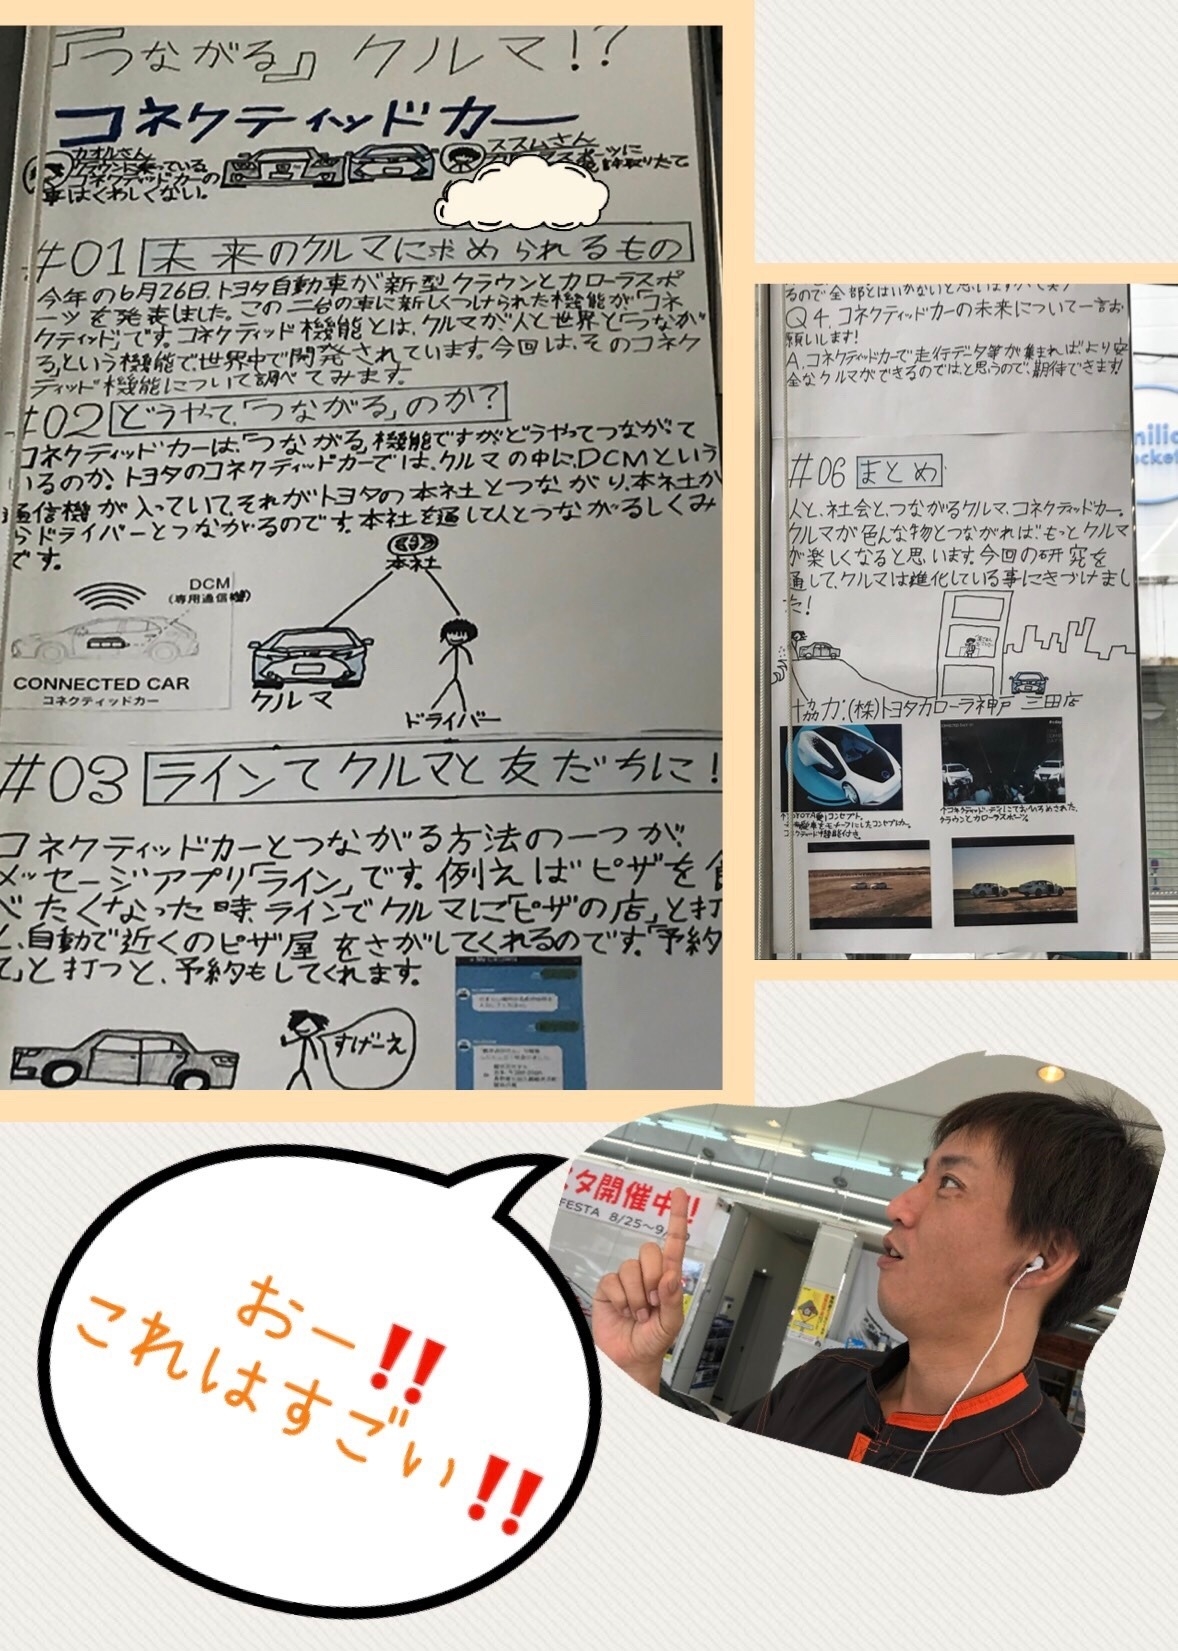 『つながる』クルマ!?
コネクティッドカー
カオルさん
クラウンに乗っている
コネクティッドカーの
事はくわしくない。
ススムさん
#01 未来のクルマに求められるもの
今年の6月26日、トヨタ自動車が新型クラウンとカローラスポ
ーツを発表しました。この二台の車に新しくつけられた機能が「コネ
クティッド」です。コネクティッド機能とは、クルマが人と世界と「つなが
る」という機能で世界中で開発されています。今回は、そのコネク
ティッド機能について調べてみます。
#02 どうやって、「つながる」のか?
コネクティッドカーは、「つながる」機能ですがどうやってつながって
いるのか、トヨタのコネクティッドカーでは、クルマの中に、DCMという
通信機が入っていて、それがトヨタの本社とつながり、本社か
らドライバーとつながるのです。本社を通して人とつながるしくみ
です。
本社
DCM
(専用通信機)
CONNECTED CAR
コネクティッドカー
クルマ
ドライバー
#03 ラインでクルマと友だちに!
コネクティッドカーとつながる方法の一つが、
メッセージアプリ「ライン」です。例えばピザを食
べたくなった時、ラインでクルマに「ピザの店」と打
と、自動で近くのピザ屋をさがしてくれるのです。「予約
て」と打つと、予約もしてくれます。
すげーえ
Q4.コネクティッドカーの未来について一言お
願いします!
A.コネクティッドカーで走行データ等が集まれば、より安
全なクルマができるのでは、と思うので、期待できます!
#06 まとめ
人と、社会と、つながるクルマ、コネクティッドカー。
クルマが色んな物とつながれば、もっとクルマ
が楽しくなると思います。今回の研究を
通して、クルマは進化している事にきづけまし
た!
協力:(株)トヨタカローラ神戸 三田店
クラウンとカローラスポーツ。
タ開催中!!
FESTA 8/25〜9/
おー‼
これはすごい‼